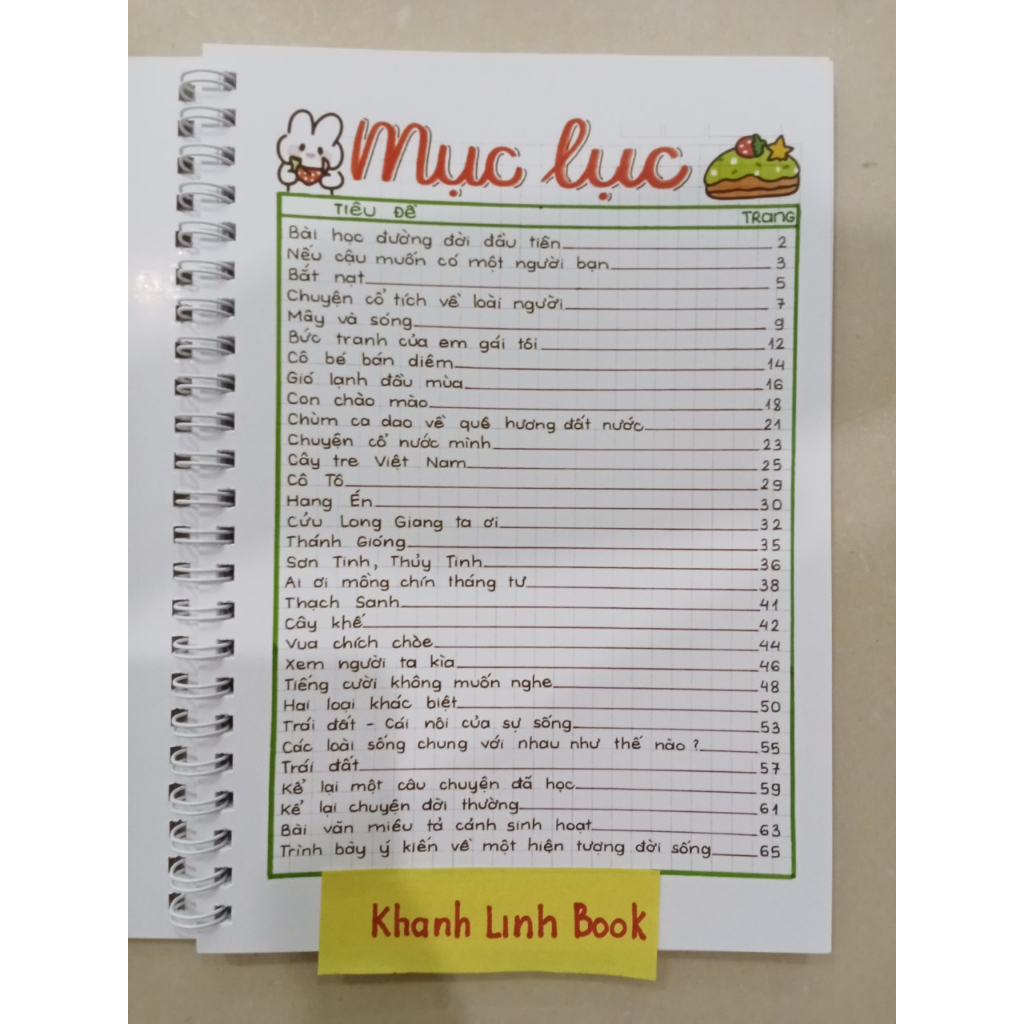 Mục lục
TIÊU ĐỀ TRANG
Bài học đường đời đầu tiên 2
Nếu cậu muốn có một người bạn 3
Bắt nạt 5
Chuyện cổ tích về loài người 7
Mây và sóng 9
Bức tranh của em gái tôi 12
Cô bé bán diêm 14
Gió lạnh đầu mùa 16
Con chào mào 18
Chùm ca dao về quê hương đất nước 21
Chuyện cổ nước mình 23
Cây tre Việt Nam 25
Cô Tô 29
Hang Én 30
Cửu Long Giang ta ơi 32
Thánh Gióng 35
Sơn Tinh, Thủy Tinh 36
Ai ơi mồng chín tháng tư 38
Thạch Sanh 41
Cây khế 42
Vua chích chòe 44
Xem người ta kìa 46
Tiếng cười không muốn nghe 48
Hai loại khác biệt 50
Trái đất - Cái nôi của sự sống 53
Các loài sống chung với nhau như thế nào? 55
Trái đất 57
Kể lại một câu chuyện đã học 59
Kể lại chuyện đời thường 61
Bài văn miêu tả cảnh sinh hoạt 63
Trình bày ý kiến về một hiện tượng đời sống 65
Khanh Linh Book